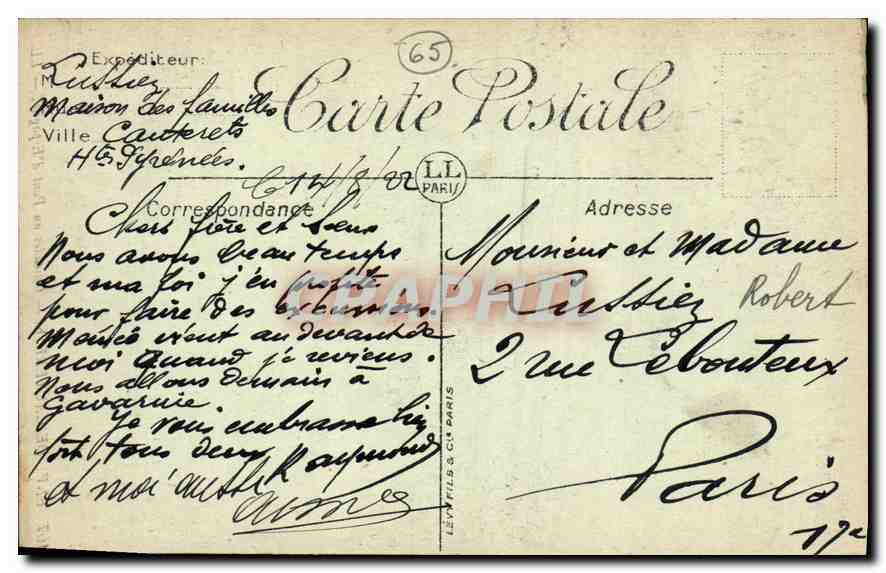 65
Expéditeur:
M Lussiez
Maison des familles
Ville Cauterets
Htes Pyrénées.
Carte Postale
LL
PARIS
C 14/8/22
Correspondance
Chers frère et soeur
Nous avons beau temps
et ma foi j'en profite
pour faire des excursions.
vient au devant de
moi quand je reviens.
Nous allons demain à
Gavarnie.
Je vous embrasse bien
fort tous deux Raymond
et moi aussi
LEVY FILS & Cie PARIS
Adresse
Monsieur et Madame
Lussiez Robert
2 rue Lebouteux
Paris
17e
CPAPHIL